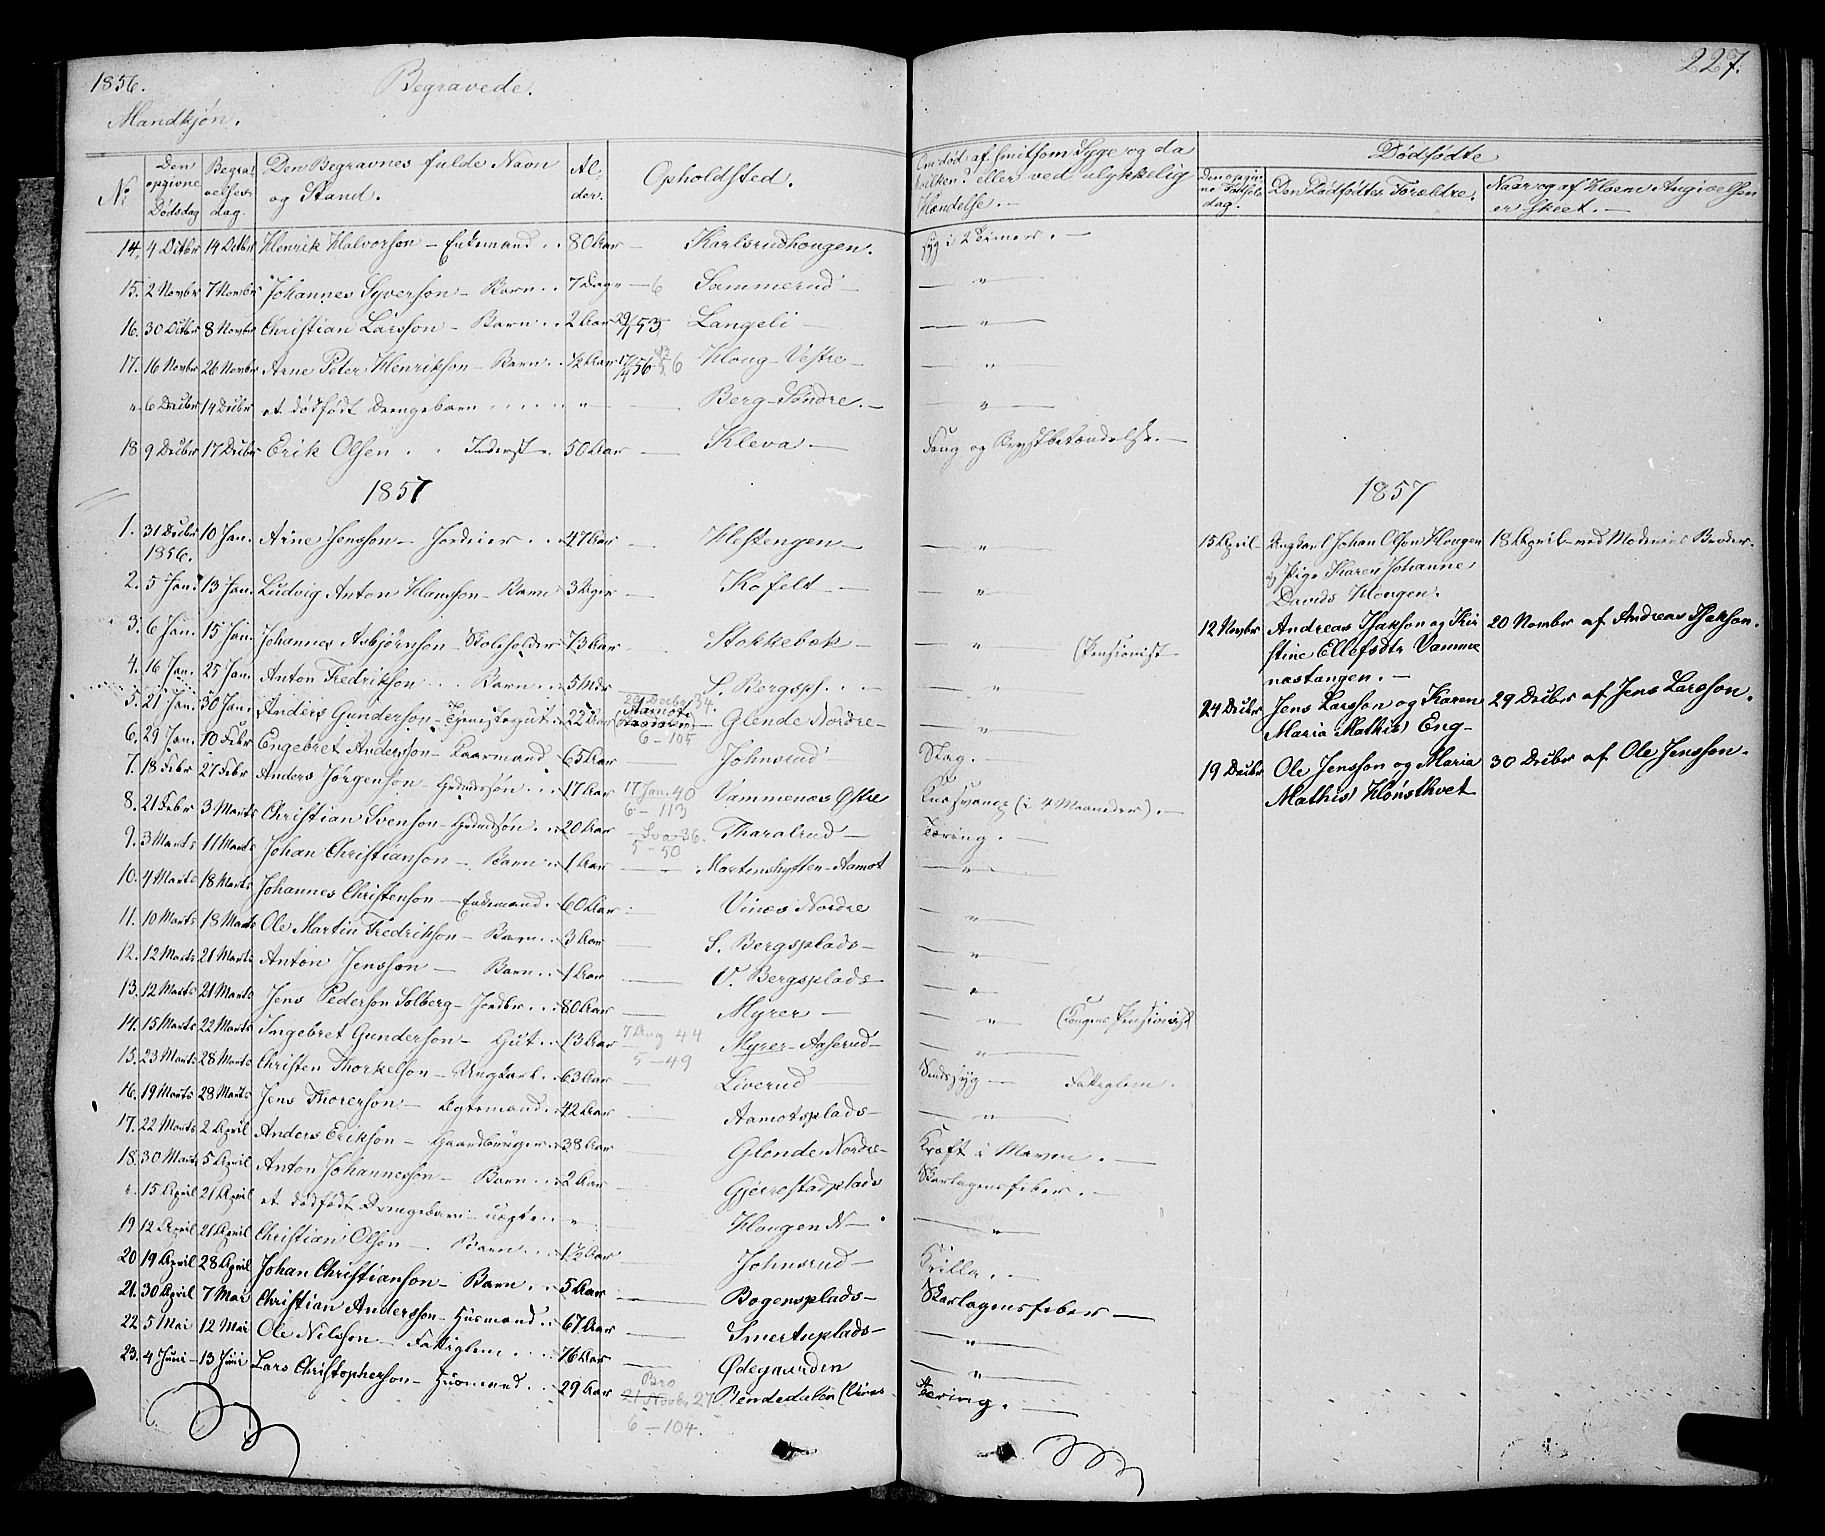 1856.
Begravede.
227.
Mandkjøn.
No
Den opgivne Dødsdag
Begravelses dag.
Den Begravnes fulde Navn og Stand.
Alder.
Opholdsted.
Om død af smitsom Syge og da hvilken? eller ved ulykkelig Hændelse.
Dødfødte
Den opgivne Fødselsdag.
Den Dødfødtes Forældre.
Naar og af Hvem Angivelsen er skeet.
14. 4 Octbr 14 Octbr Henrik Halvorson - Enkemand 80 Aar - Karlsrudhougen.
15. 2 Novbr 7 Novbr Johannes Syverson - Barn 7 Dage - 6 Sammerud - "
16. 30 Octbr 8 Novbr Christian Larsson - Barn 2 Aar 29/1 53 Langeli - "
17. 16 Novbr 26 Novbr Arne Peter Henrikson - Barn 1/2 Aar 17/4 56 6 Houg - Vestre - "
" 6 Decbr 14 Decbr et dødfødt Drengebarn " Berg - Søndre. - "
18 9 Decbr 17 Decbr Erik Olsen Inderst 50 Aar - Kleva - og Brystbetændelse.
1857
1857
1. 31 Decbr 1856. 10 Jan. Arne Jensson - Jordeier 47 Aar - Hestengen - "
2. 5 Jan. 13 Jan. Ludvig Anton Hansson - Barn 3 Uger - Kofeld - "
3. 6 Jan. 15 Jan. Johannes Asbjørnson - Skoleholder 73 Aar Stokkebæk - " (Pensionist
4. 16 Jan. 25 Jan. Anton Fredrikson Barn 5 Mdr S. Bergspl. "
5. 21 Jan. 30 Jan. Anders Gunderson - Tjenestegut 22 Aar 29 Decbr 34. 6-105 Glende Nordre - "
6. 29 Jan. 10 Febr Engebret Andersson - Laarmand 65 Aar Johnsrud Slag. -
7. 18 Febr 27 Febr Anders Jørgenson - 17 Aar 17 Jan. 40 6-113 Vammenæs Østre (i 4 Maaneder). -
8. 21 Febr 3 Marts Christian Svenson - 20 Aar 36. 5-50 Tharalrud - Tæring. -
9. 3 Marts 11 Marts Johan Christianson - Barn 1 Aar - Martenshytten - Aamot "
10. 4 Marts 18 Marts Johannes Christenson - Enkemand 60 Aar Vinæs Nordre "
11. 10 Marts 18 Marts Ole Martin Fredrikson - Barn 3 Aar - S. Bergsplads - "
12. 12 Marts 21 Marts Anton Jensson - Barn 1 Aar - V. Bergsplads - "
13. 12 Marts 21 Marts Jens Pederson Solberg - Jordbr 80 Aar - Myrer - " Pensionist
14. 15 Marts 22 Marts Ingebret Gunderson - Gut 13 Aar 7 Aug 44 5-49 Myrer - Aaserud - "
15. 23 Marts 28 Marts Christen Thorkelson - Ungkarl 63 Aar - Liverud Sindssyg - Fattiglem.
16. 19 Marts 28 Marts Jens Thorerson - Ægtemand 42 Aar Aamotsplads - "
17. 22 Marts 2 April Anders Erikson - Gaardbruger 38 Aar Glende Nordre - Kræft i Maven. -
18. 30 Marts 5 April Anton Johannesson - Barn 2 Aar Gjerrestadplads Skarlagensfeber. -
" 15 April 21 April et dødfødt Drengebarn - uægte " Hougen N - "
19 12 April 21 April Christian Olson - Barn 1 1/2 Aar Johnsrud -
20 19 April 28 April Johan Christianson - Barn 5 Aar - Bogensplads - Skarlagensfeber -
21. 30 April 7 Mai Christian Andersson - Husmand 67 Aar - Smertuplads - "
22. 5 Mai 12 Mai Ole Nilsson - Fattiglem 76 Aar - Ødegaarden "
23. 4 Juni 13 Juni Lars Christopherson - Husmand 29 Aar Bro 21 Novbr 27 6-104. Bendedalen (Vinæs Tæring. -
15 April - Ungkarl Johan Olson Hougen og Pige Karen Johanne Davids Hougen. 18 April - ved Moderens Broder.
12 Novbr Andreas Isakson og Kirstine Ellefsdtr Vammenæstangen. - 20 Novbr af Andreas Isakson.
24 Decbr Jens Larsson og Karen Maria Mathisd Eng - 29 Decbr af Jens Larsson.
19 Decbr Ole Jensson og Maria Mathisd Hønskvet 30 Decbr af Ole Jensson.